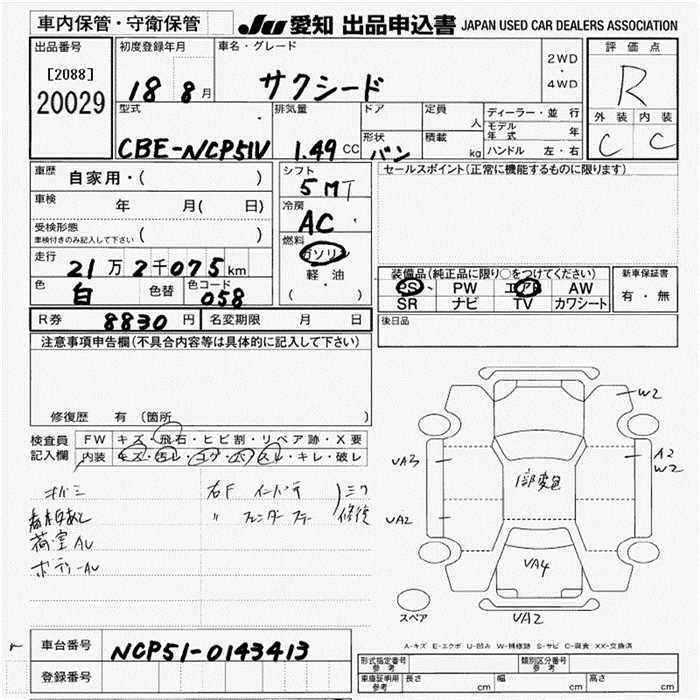 車内保管・守衛保管
JU 愛知 出品申込書 JAPAN USED CAR DEALERS ASSOCIATION
出品番号
[2088]
20029
初度登録年月
18 8月
車名・グレード
サクシード
2WD
・
4WD
評価点
R
外装 内装
C C
型式
CBE-NCP51V
排気量
1.49 CC
ドア
形状
バン
定員
人
積載
kg
ディーラー・並行
モデル年式 年
ハンドル 左・右
車歴 自家用・( )
車検 年 月( 日)
受検形態
車検付きのみ記入して下さい ( )
走行
21万2千075km
色
白
色替
色コード
058
シフト
5MT
冷房
AC
燃料
ガソリン
軽油
( ・ )
セールスポイント(正常に機能するものに限ります)
装備品(純正品に限り○をつけてください)
PS PW エアB AW
SR ナビ TV カワシート
新車保証書
有・無
R券 8830円
名変期限 月 日
後日品
注意事項申告欄(不具合内容等は具体的に記入して下さい)
修復歴 有(箇所 )
検査員記入欄
FW キズ・飛石・ヒビ割・リペア跡・X要
内装 キズ・汚レ・コゲ・穴・スレ・キレ・破レ
荷室AU
ボディーAU
右F インパネ
〃
修復
W2
VA3
A2
W2
VA2
1部変色
VA4
VA2
スペア
A-キズ E-エクボ U-凹み W-補修跡 S-サビ C-腐食 XX-交換済
車台番号 NCP51-0143413
登録番号
形式指定番号
参考
類別区分番号
参考
車庫証明用
参考
長さ cm 幅 cm 高さ cm